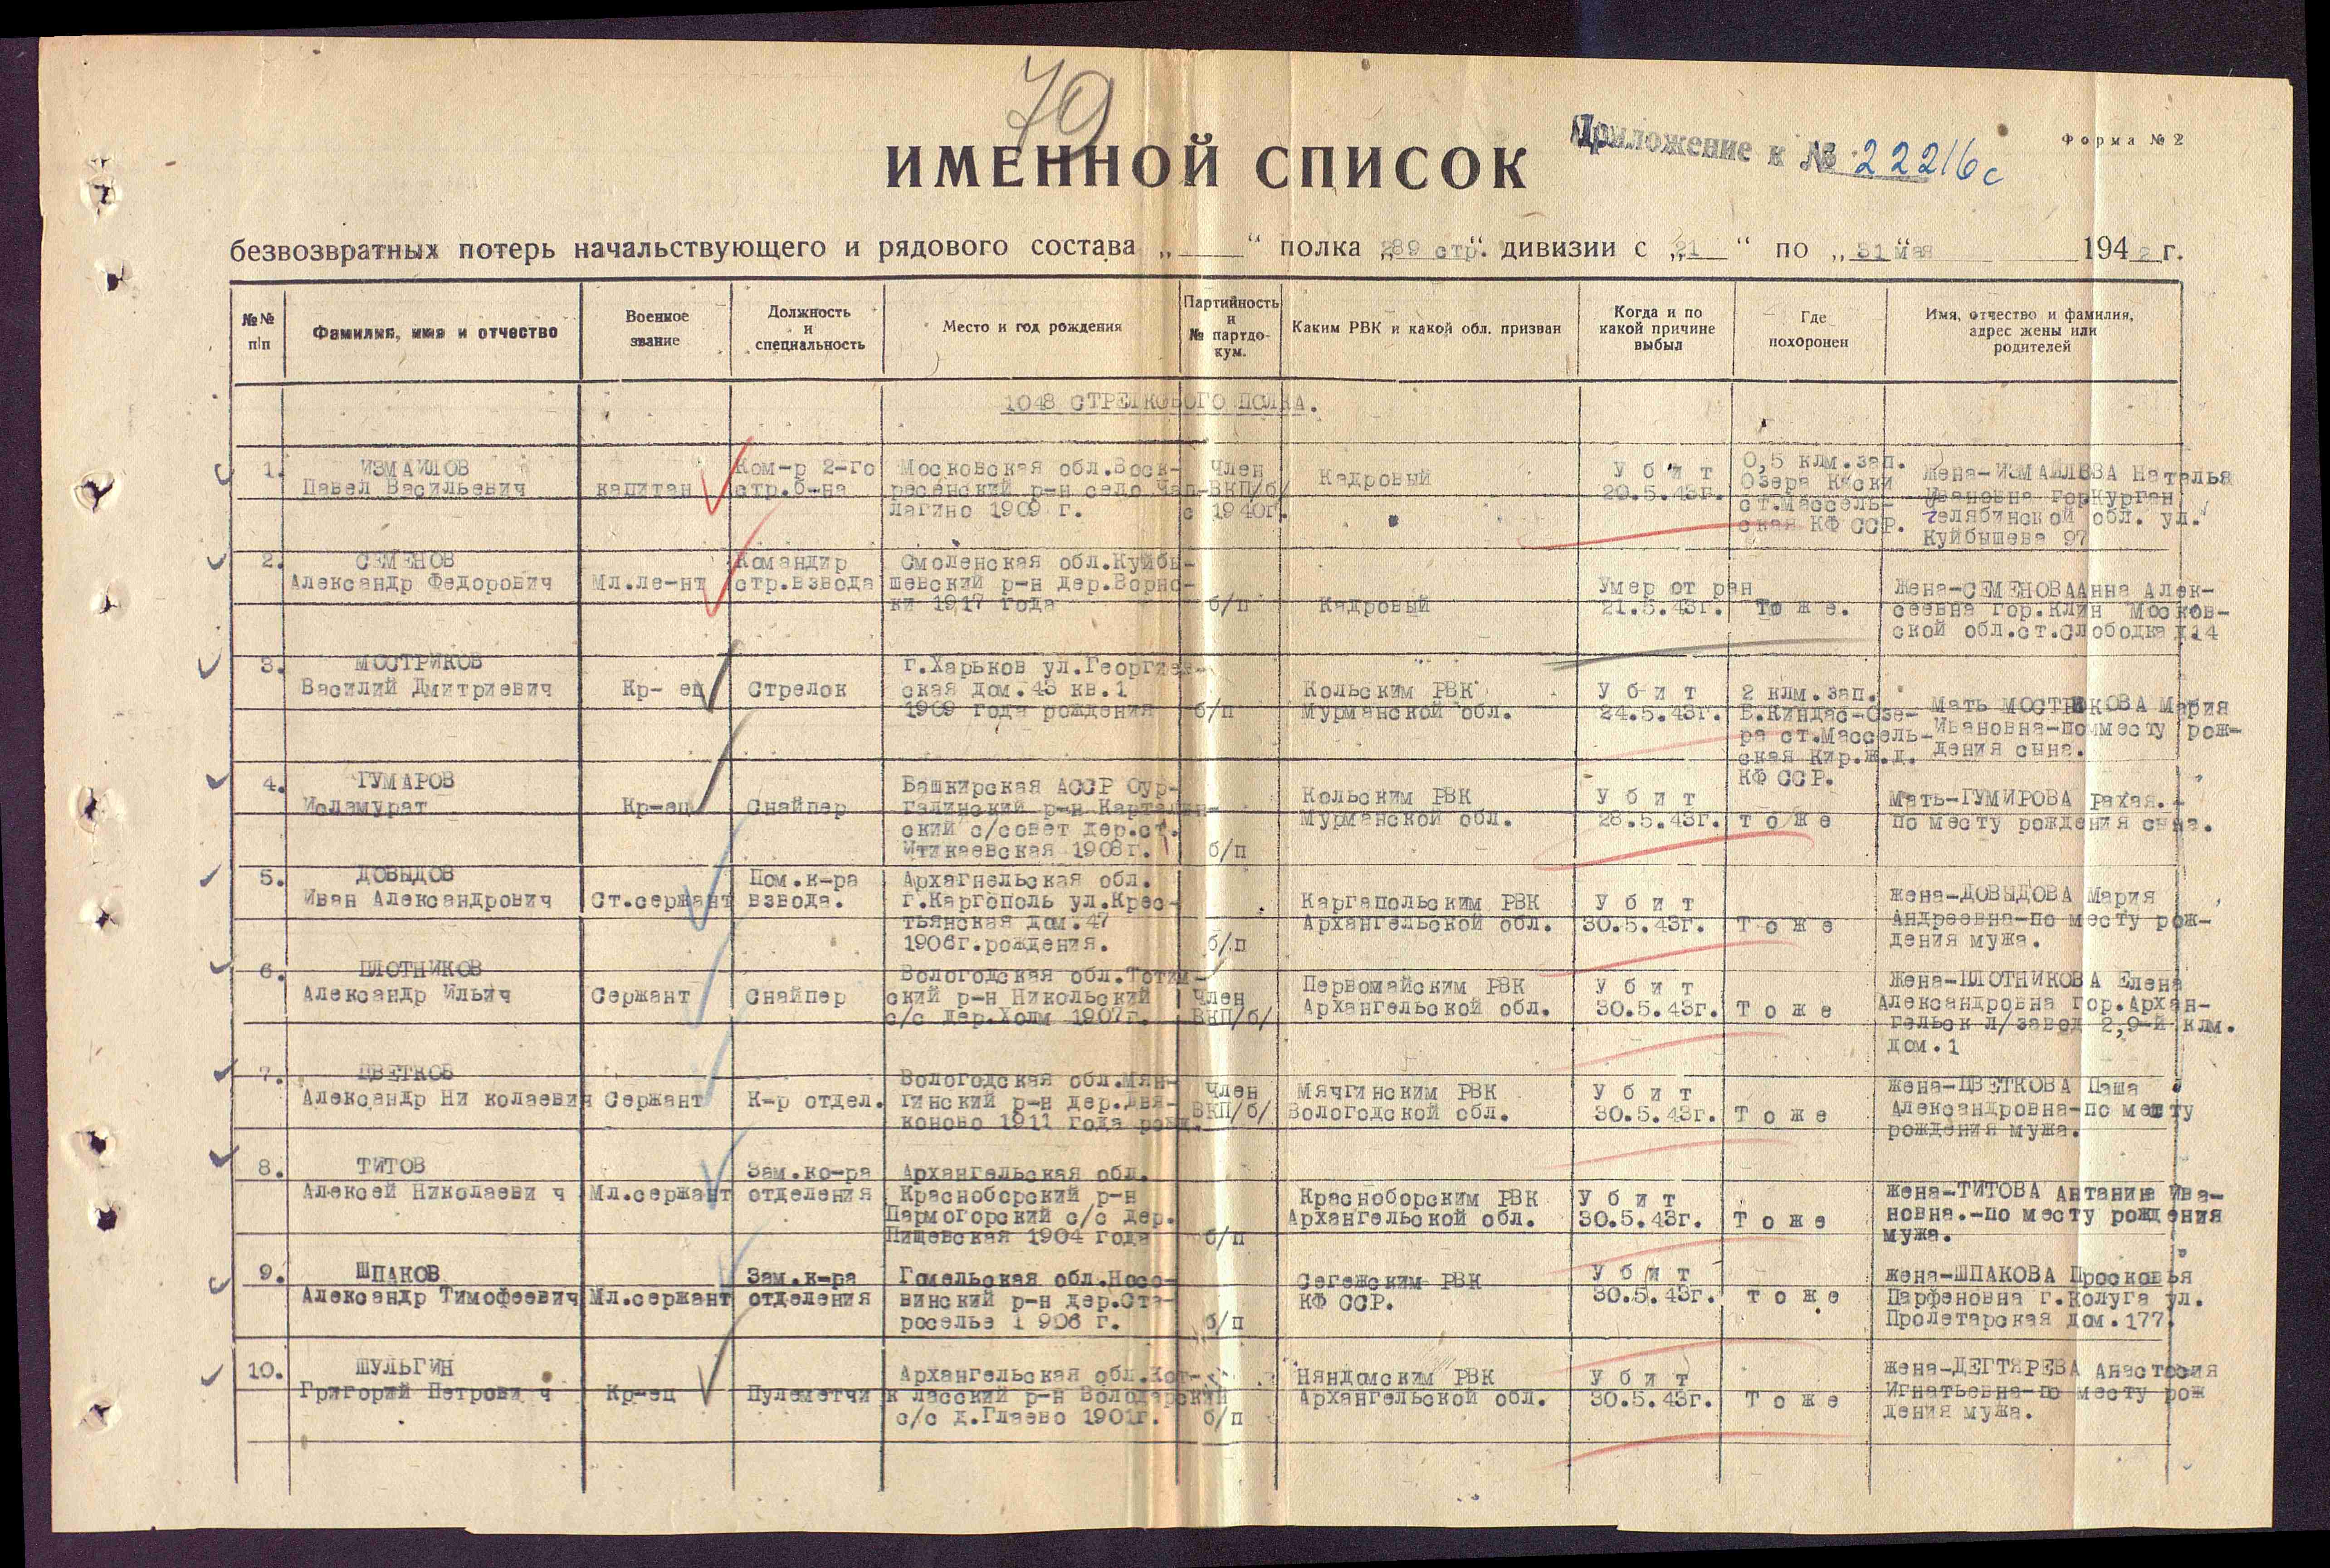 79
ИМЕННОЙ СПИСОК
Приложение к № 22216с
Форма № 2
безвозвратных потерь начальствующего и рядового состава „ “ полка „289 стр.“ дивизии с „21 “ по „31“ мая 194 г.
№№ п/п
Фамилия, имя и отчество
Военное звание
Должность и специальность
Место и год рождения
Партийность и № партдокум.
Каким РВК и какой обл. призван
Когда и по какой причине выбыл
Где похоронен
Имя, отчество и фамилия, адрес жены или родителей
1048 СТРЕЛКОВОГО ПОЛКА.
1. ИЗМАИЛОВ
Павел Васильевич
капитан
Ком-р 2-го
стр.б-на
Московская обл.Воск-
ресенский р-н село Чап-
лагино 1909 г.
Член
ВКП/б/
с 1940г.
Кадровый
У б и т
20.5.43г.
0,5 клм.зап.
Озера Киски
ст.Массель-
ская КФ ССР.
жена-ИЗМАИЛОВА Наталья
Ивановна гор.Курган
Челябинской обл. ул.
Куйбышева 97
2. СЕМЕНОВ
Александр Федорович
Мл.ле-нт
Командир
стр.взвода
Смоленская обл.Куйбы-
шевский р-н дер.Ворно-
ки 1917 года
б/п
Кадровый
Умер от ран
21.5.43г.
То же.
жена-СЕМЕНОВААнна Алек-
сеевна гор.Клин Москов-
ской обл.ст.Слободка д14
3. МОСТРИКОВ
Василий Дмитриевич
Кр- ец
Стрелок
г.Харьков ул.Георгиев-
ская дом.43 кв.1
1909 года рождения
б/п
Кольским РВК
Мурманской обл.
У б и т
24.5.43г.
2 клм.зап.
Б.Киндас-Озе-
ра ст.Массель-
ская Кир.ж.д.
КФ ССР.
Мать МОСТРИКОВА Мария
Ивановна-помместу рож-
дения сына.
4. ГУМАРОВ
Исламурат
Кр-ец
Снайпер
Башкирская АССР Бур-
галинский р-н Карталин-
ский с/совет дер.ст.
Итикаевская 1908г.
б/п
Кольским РВК
Мурманской обл.
У б и т
28.5.43г.
т о ж е
Мать-ГУМИРОВА Рахая.-
по месту рождения сына.
5. ДОВЫДОВ
Иван Александрович
Ст.сержант
Пом.к-ра
взвода.
Архагнельская обл.
г.Каргополь ул.Крес-
тьянская дом.47
1906г.рождения.
б/п
Каргапольским РВК
Архангельской обл.
У б и т
30.5.43г.
Т о ж е
жена-ДОВЫДОВА Мария
Андреевна-по месту рож-
дения мужа.
6. ПЛОТНИКОВ
Александр Ильич
Сержант
Снайпер
Вологодская обл.Тотим-
ский р-н Никольский
с/с дер.Холм 1907г.
Член
ВКП/б/
Первомайским РВК
Архангельской обл.
У б и т
30.5.43г.
Т о ж е
жена-ПЛОТНИКОВА Елена
Александровна гор.Архан-
гельск л/завод 2,9-й клм.
дом.1
7. ЦВЕТКОВ
Александр Ни колаевич
Сержант
К-р отдел.
Вологодская обл.Мян-
гинский р-н дер.Дья-
коново 1911 года рожд.
Член
ВКП/б/
Мячгинским РВК
Вологодской обл.
У б и т
30.5.43г.
Т о ж е
жена-ЦВЕТКОВА Паша
Александровна-по месту
рождения мужа.
8. ТИТОВ
Алексей Николаеви ч
Мл.сержант
Зам.ко-ра
отделения
Архангельская обл.
Красноборский р-н
Пермогорский с/с дер.
Нищевская 1904 года
б/п
Красноборским РВК
Архангельской обл.
У б и т
30.5.43г.
Т о ж е
жена-ТИТОВА Антанина Ива-
новна.-по месту рождения
мужа.
9. ШПАКОВ
Александр Тимофеевич
Мл.сержант
Зам.к-ра
отделения
Гомельская обл.Носо-
винский р-н дер.Ста-
роселье 1 906 г.
б/п
Сегежским РВК
КФ ССР.
У б и т
30.5.43г.
т о ж е
жена-ШПАКОВА Просковья
Парфеновна г.Колуга ул.
Пролетарская дом.177.
10. ШУЛЬГИН
Григорий Петрови ч
Кр-ец
Пулеметчи к
Архангельская обл.Кот-
ласский р-н Володарский
с/с д.Глаево 1901г.
б/п
Няндомским РВК
Архангельской обл.
У б и т
30.5.43г.
Т о ж е
жена-ДЕГТЯРЕВА Анастосия
Игнатьевна-по месту рож
дения мужа.